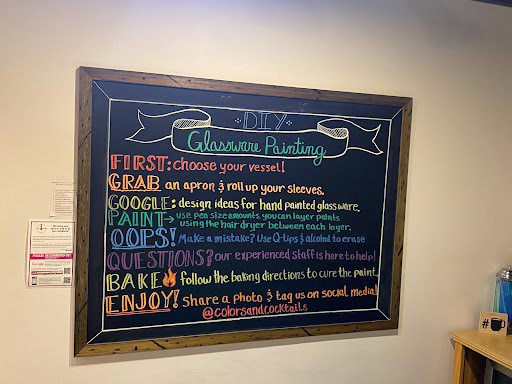 DIY
Glassware Painting
FIRST: choose your vessel!
GRAB an apron & roll up your sleeves.
GOOGLE: design ideas for hand painted glassware.
PAINT→ use pea size amounts, you can layer paints
using the hair dryer between each layer.
OOPS! Make a mistake? Use Q-tips & alcohol to erase
QUESTIONS? our experienced staff is here to help!
BAKE follow the baking directions to cure the paint.
ENJOY! share a photo & tag us on social media!
@colorsandcocktails
#